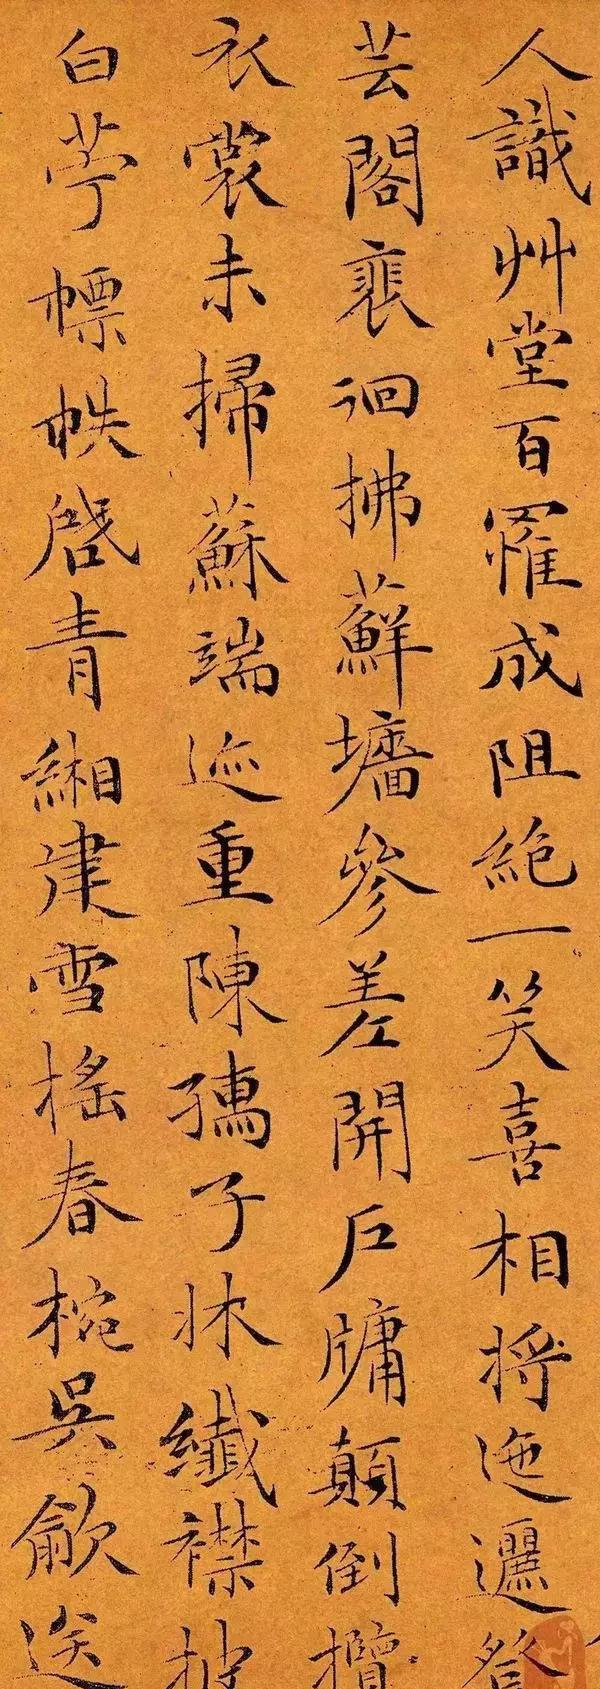 人識艸堂百罹成阻絶一笑喜相將迤邐登
芸閣裵徊拂蘚墻參差開户牖顛倒攬
衣裳未掃蘇端迹重陳孺子牀纖襟披
白苧幖帙啓青緗建雪榣春椀吴歈送